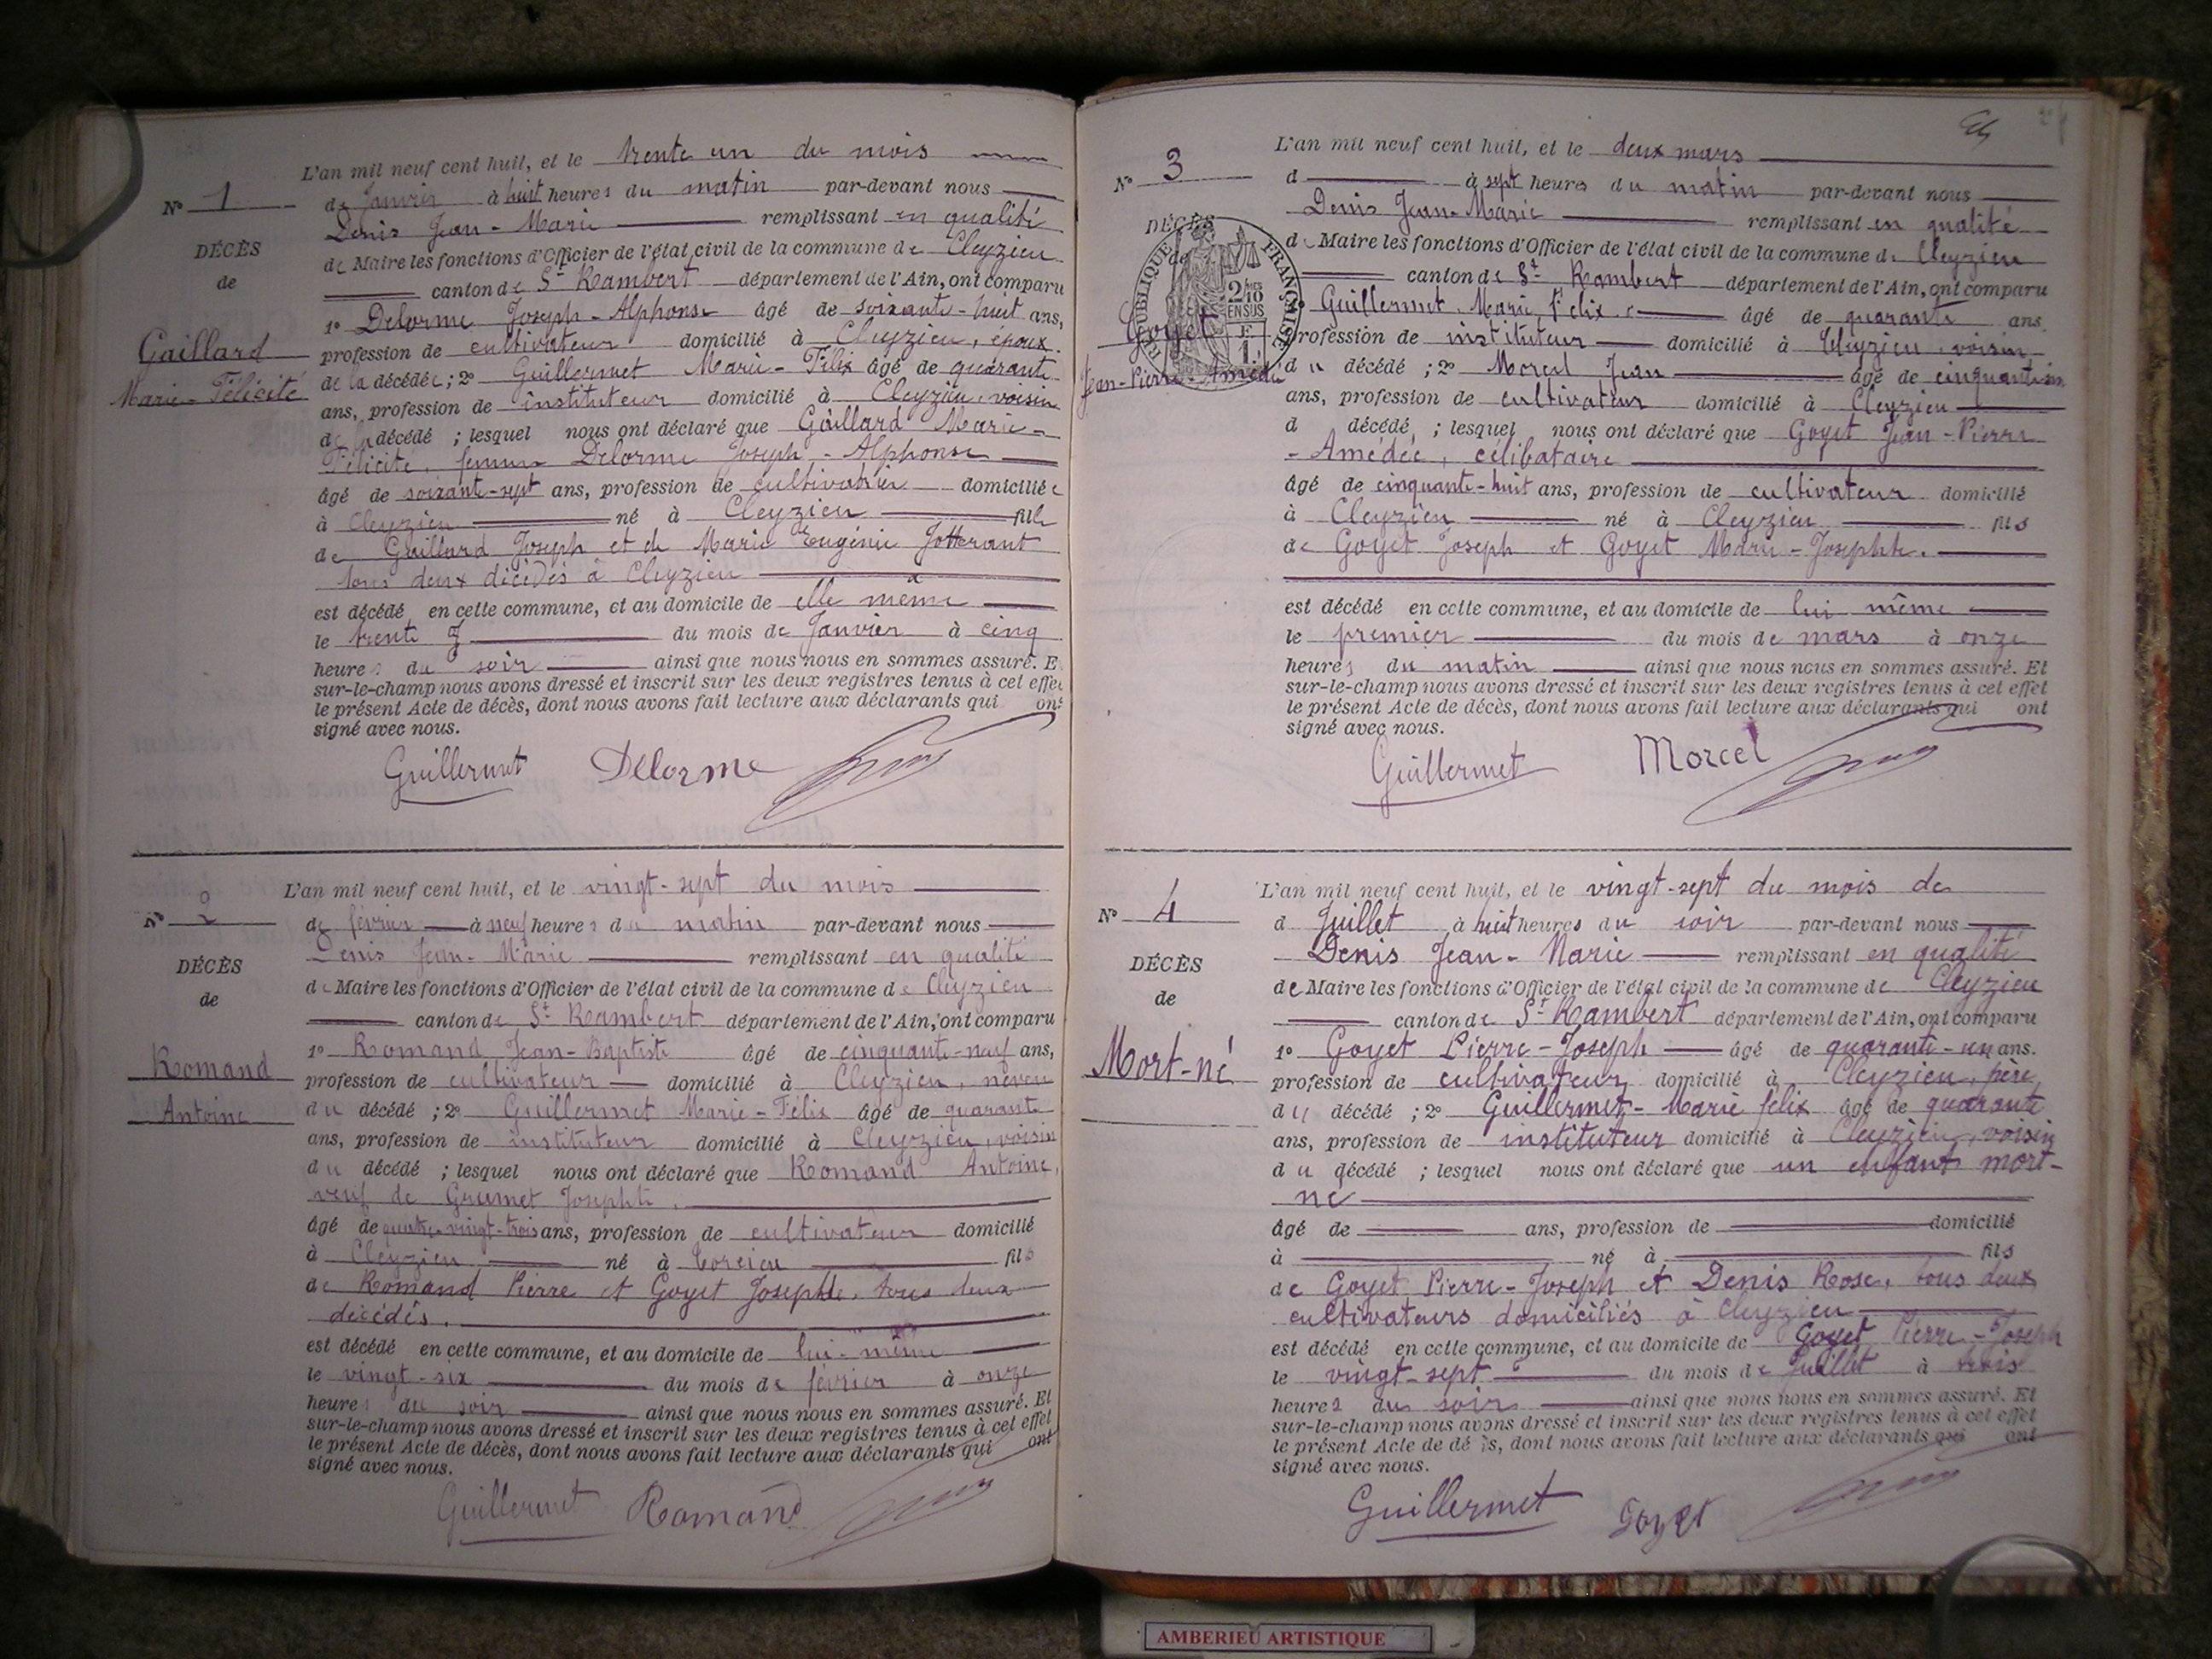 N° 1
DÉCÈS
de
Gaillard
Marie-Félicité
L'an mil neuf cent huit, et le trente un du mois
de Janvier à huit heures du matin par-devant nous
Denis Jean-Marie remplissant en qualité
de Maire les fonctions d'Officier de l'état civil de la commune de Cleyzieu
canton de St Rambert département de l'Ain, ont comparu
1° Delorme Joseph-Alphonse âgé de soixante-huit ans,
profession de cultivateur domicilié à Cleyzieu, époux
de la décédée; 2° Guillermet Marie-Félix âgé de quarante
ans, profession de instituteur domicilié à Cleyzieu, voisin
de la décédé ; lesquel nous ont déclaré que Gaillard Marie-
Félicité, femme Delorme Joseph-Alphonse
âgé de soixante-sept ans, profession de cultivatrice domiciliée
à Cleyzieu né à Cleyzieu fille
de Gaillard Joseph et de Marie Eugénie Jotterant
tous deux décédés à Cleyzieu
est décédé en cette commune, et au domicile de elle même
le trente du mois de Janvier à cinq
heures du soir ainsi que nous nous en sommes assuré. E
sur-le-champ nous avons dressé et inscrit sur les deux registres tenus à cet effet
le présent Acte de décès, dont nous avons fait lecture aux déclarants qui ont
signé avec nous.
Guillermet Delorme
N° 2
DÉCÈS
de
Romand
Antoine
L'an mil neuf cent huit, et le vingt-sept du mois
de février à neuf heures du matin par-devant nous
Denis Jean-Marie remplissant en qualité
de Maire les fonctions d'Officier de l'état civil de la commune de Cleyzieu
canton de St Rambert département de l'Ain, ont comparu
1° Romand Jean-Baptiste âgé de cinquante-neuf ans,
profession de cultivateur domicilié à Cleyzieu, neveu
du décédé ; 2° Guillermet Marie-Félix âgé de quarante
ans, profession de instituteur domicilié à Cleyzieu, voisin
du décédé ; lesquel nous ont déclaré que Romand Antoine,
veuf de Grumet Josephte.
âgé de quatre-vingt-trois ans, profession de cultivateur domicilié
à Cleyzieu né à Torcieu fils
de Romand Pierre et Goyet Josephte, tous deux
décédés.
est décédé en cette commune, et au domicile de lui-même
le vingt-six du mois de février à onze
heures du soir ainsi que nous nous en sommes assuré. Et
sur-le-champ nous avons dressé et inscrit sur les deux registres tenus à cet effet
le présent Acte de décès, dont nous avons fait lecture aux déclarants qui ont
signé avec nous.
Guillermet Romand
N° 3
DÉCÈS
de
RÉPUBLIQUE FRANÇAISE
2/10 EN SUS
Goyet
Jean-Pierre-Amédé
L'an mil neuf cent huit, et le deux mars
d à sept heures du matin par-devant nous
Denis Jean-Marie remplissant en qualité
de Maire les fonctions d'Officier de l'état civil de la commune de Cleyzieu
canton de St Rambert département de l'Ain, ont comparu
Guillermet Marie Félix âgé de quarante ans,
profession de instituteur domicilié à Cleyzieu, voisin
du décédé ; 2° Morcel Jean âgé de
ans, profession de cultivateur domicilié à Cleyzieu
d décédé, ; lesquel nous ont déclaré que Goyet Jean-Pierre
-Amédée, célibataire
âgé de cinquante-huit ans, profession de cultivateur domicilié
à Cleyzieu né à Cleyzieu fils
de Goyet Joseph et Goyet Marie-Josephte.
est décédé en cette commune, et au domicile de lui même
le premier du mois de mars à onze
heures du matin ainsi que nous nous en sommes assuré. Et
sur-le-champ nous avons dressé et inscrit sur les deux registres tenus à cet effet
le présent Acte de décès, dont nous avons fait lecture aux déclarants qui ont
signé avec nous.
Guillermet Morcel
N° 4
DÉCÈS
de
Mort-né
L'an mil neuf cent huit, et le vingt-sept du mois de
d Juillet à huit heures du soir par-devant nous
Denis Jean-Marie remplissant en qualité
de Maire les fonctions d'Officier de l'état civil de la commune de Cleyzieu
canton de St Rambert département de l'Ain, ont comparu
1° Goyet Pierre-Joseph âgé de quarante-un ans.
profession de cultivateur domicilié à Cleyzieu, père
du décédé ; 2° Guillermet-Marie félix âgé de quarante
ans, profession de instituteur domicilié à Cleyzieu, voisin
du décédé ; lesquel nous ont déclaré que un enfant mort-
né
âgé de ans, profession de domicilié
à né à fils
de Goyet Pierre-Joseph et Denis Rose, tous deux
cultivateurs domiciliés à Cleyzieu
est décédé en cette commune, et au domicile de Goyet Pierre-Joseph
le vingt-sept du mois de Juillet à trois
heures du soir ainsi que nous nous en sommes assuré. Et
sur-le-champ nous avons dressé et inscrit sur les deux registres tenus à cet effet
le présent Acte de dé ès, dont nous avons fait lecture aux déclarants qui ont
signé avec nous.
Guillermet Goyet
AMBERIEU ARTISTIQUE